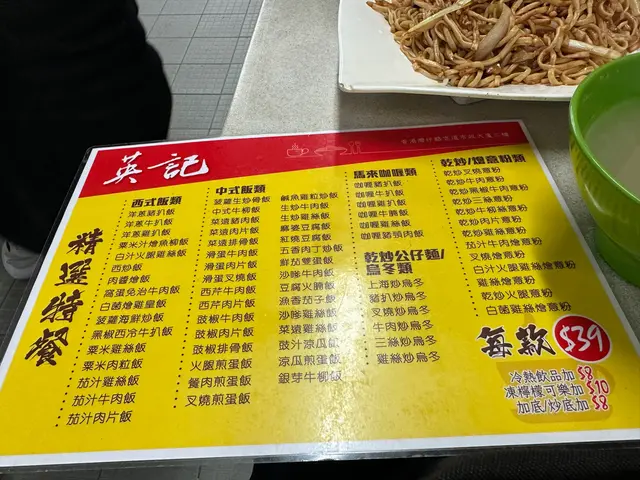 英記
精選特餐
西式飯類
洋蔥豬扒飯
洋蔥牛扒飯
洋蔥雞扒飯
粟米汁燴魚柳飯
白汁火腿雞絲飯
西炒飯
肉醬燴飯
窩蛋免治牛肉飯
白菌燴雞皇飯
菠蘿海鮮炒飯
黑椒西冷牛扒飯
粟米雞絲飯
粟米肉粒飯
茄汁雞絲飯
茄汁牛肉飯
茄汁肉片飯
中式飯類
菠蘿生炒骨飯
中式牛柳飯
菜遠豬肉飯
菜遠肉片飯
菜遠排骨飯
滑蛋牛肉飯
滑蛋肉片飯
滑蛋叉燒飯
西芹牛肉飯
西芹肉片飯
豉椒牛肉飯
豉椒肉片飯
豉椒排骨飯
火腿煎蛋飯
餐肉煎蛋飯
叉燒煎蛋飯
鹹魚雞粒炒飯
生炒牛肉飯
生炒雞絲飯
麻婆豆腐飯
紅燒豆腐飯
五香肉丁炒飯
鮮茄雙蛋飯
沙嗲牛肉飯
豆腐火腩飯
魚香茄子飯
沙嗲雞絲飯
菜遠雞絲飯
豉汁涼瓜飯
涼瓜煎蛋飯
銀芽牛柳飯
馬來咖喱類
咖喱豬扒飯
咖喱牛扒飯
咖喱雞扒飯
咖喱牛腩飯
咖喱雞絲飯
咖喱豬頸肉飯
乾炒公仔麵/
烏冬類
上海炒烏冬
豬扒炒烏冬
叉燒炒烏冬
牛肉炒烏冬
三絲炒烏冬
雞絲炒烏冬
乾炒/燴意粉類
乾炒叉燒意粉
乾炒牛肉意粉
乾炒黑椒牛肉意粉
乾炒三絲意粉
乾炒牛柳絲意粉
乾炒肉片意粉
乾炒雞絲意粉
茄汁牛肉燴意粉
叉燒燴意粉
白汁火腿雞絲意粉
雞絲燴意粉
乾炒火腿意粉
白菌雞絲燴意粉
每款 $39
冷熱飲品加 $8
凍檸檬可樂加 $10
加底/炒底加 $8